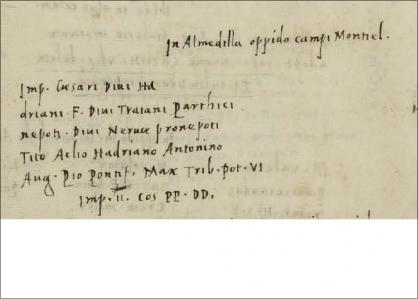 In Almedilla oppido campi Montiel.
Imp. Cæsari Diui Ha
driani. F. Diui Traiani Parthici
nepoti. Diui Neruæ pronepoti
Tito Aelio Hadriano Antonino
Aug. Pio Pontif. Max Trib. Pot. VI
Imp. II. Cos PP. DD.